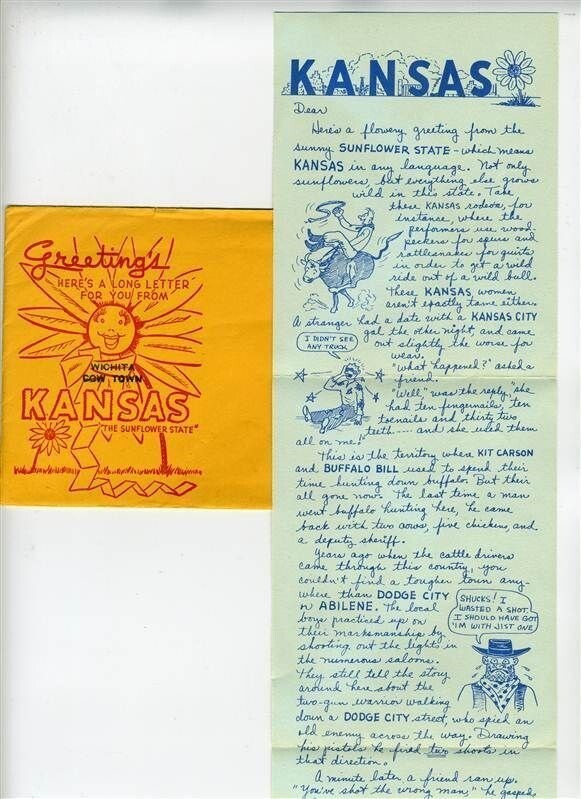 Greeting's!
HERE'S A LONG LETTER
FOR YOU FROM
WICHITA
COW TOWN
KANSAS
"THE SUNFLOWER STATE"
KANSAS
Dear
Here's a flowery greeting from the
sunny SUNFLOWER STATE - which means
KANSAS in any language. Not only
sunflowers, but everything else grows
wild in this state. Take
these KANSAS rodeos, for
instance, where the
performers use wood
peckers for spurs and
rattlesnakes for quirts
in order to get a wild
ride out of a wild bull.
These KANSAS women
aren't exactly tame either.
A stranger had a date with a KANSAS CITY
gal the other night, and came
out slightly the worse for
wear.
I DIDN'T SEE
ANY TRUCK
"What happened?" asked a
friend.
"Well," was the reply, "she
had ten fingernails, ten
toenails and thirty two
teeth ---- and she used them
all on me!"
This is the territory where KIT CARSON
and BUFFALO BILL used to spend their
time hunting down buffalo. But their
all gone now. The last time a man
went buffalo hunting here, he came
back with two cows, five chickens, and
a deputy sheriff.
Years ago when the cattle drivers
came through this country, you
couldn't find a tougher town any-
where than DODGE CITY
or ABILENE. The local
boys practiced up on
their marksmanship by
shooting out the lights in
the numerous saloons.
They still tell the story
around here about the
two-gun warrior walking
down a DODGE CITY street, who spied an
old enemy across the way. Drawing
his pistols he fired two shoots in
that direction.
SHUCKS! I
WASTED A SHOT.
I SHOULD HAVE GOT
'IM WITH JIST ONE
A minute later a friend ran up.
"You've shot the wrong man," he gasped.